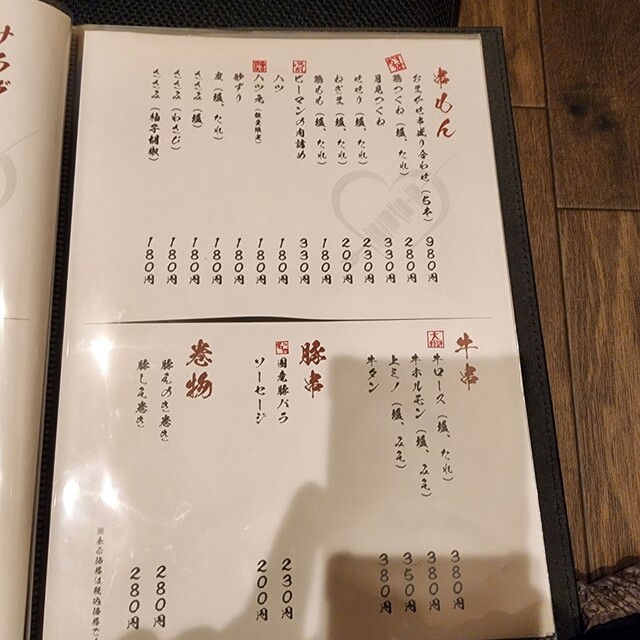 サラダ
串もん
おまかせ串盛り合わせ(5本) 980円
鶏つくね(塩、たれ) 280円
月見つくね 330円
せせり(塩、たれ) 230円
ねぎま(塩、たれ) 200円
鶏もも(塩、たれ) 180円
ピーマンの肉詰め 330円
ハツ 180円
ハツ元(数量限定) 180円
砂ずり 180円
皮(塩、たれ) 180円
ささみ(塩) 180円
ささみ(わさび) 180円
ささみ(柚子胡椒) 180円
牛串
牛ロース(塩、たれ) 380円
牛ホルモン(塩、みそ) 380円
上ミノ(塩、みそ) 350円
牛タン 380円
豚串
国産豚バラ 230円
ソーセージ 200円
巻物
豚えのき巻き 280円
豚しそ巻き 280円
※表示価格は税込価格で